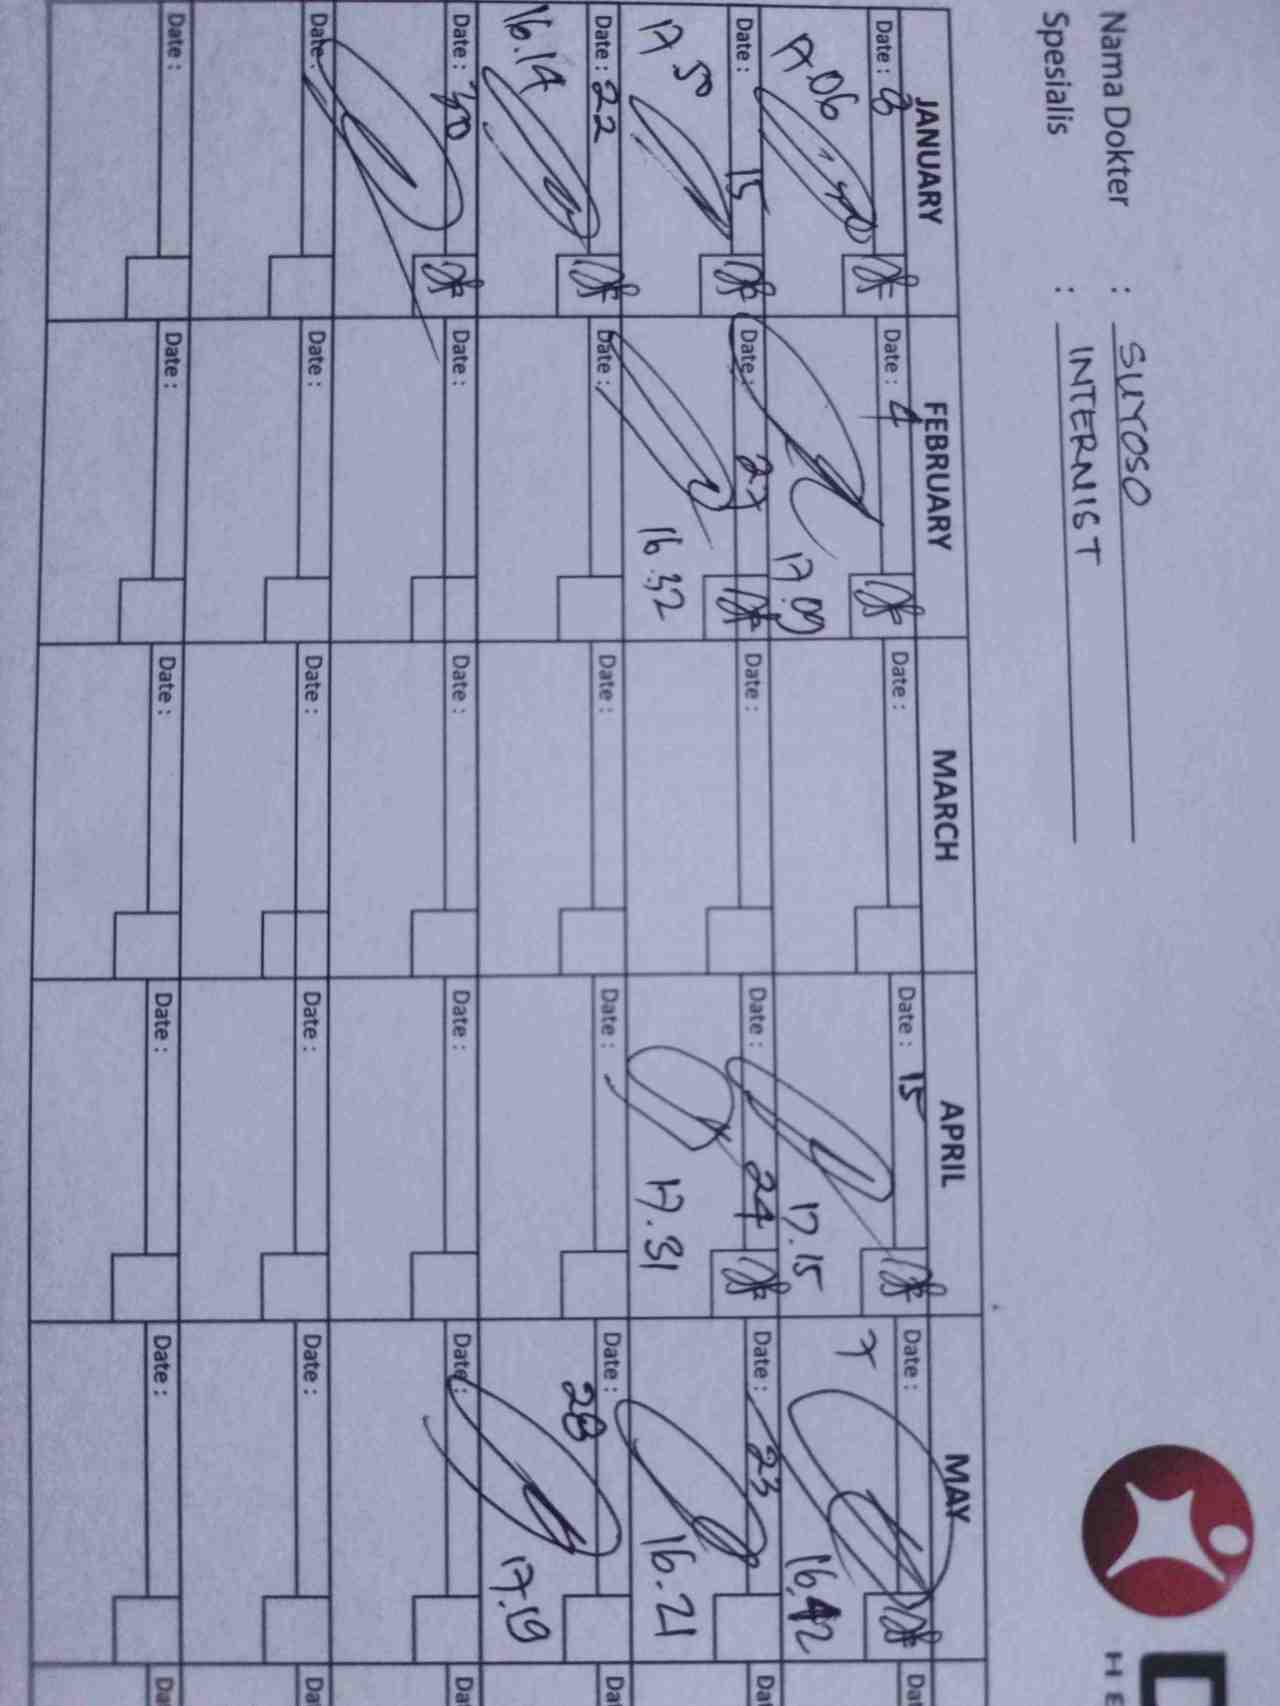 Nama Dokter : SUYOSO
Spesialis : INTERNIST
HE
JANUARY FEBRUARY MARCH APRIL MAY
Date : 8 Date : 4 Date : Date : 15 Date : Dat
17.06 17.09 17.15 7 16.42
Date : 15 Date : 27 Date : Date : 24 Date : 23 Dat
17.50 16.32 17.31 16.21
Date : 22 Date : Date : Date : Date : Dat
16.14 28 17.19
Date : 30 Date : Date : Date : Date : Dat
Date : Date : Date : Date : Date : Dat
Date : Date : Date : Date : Date : Dat